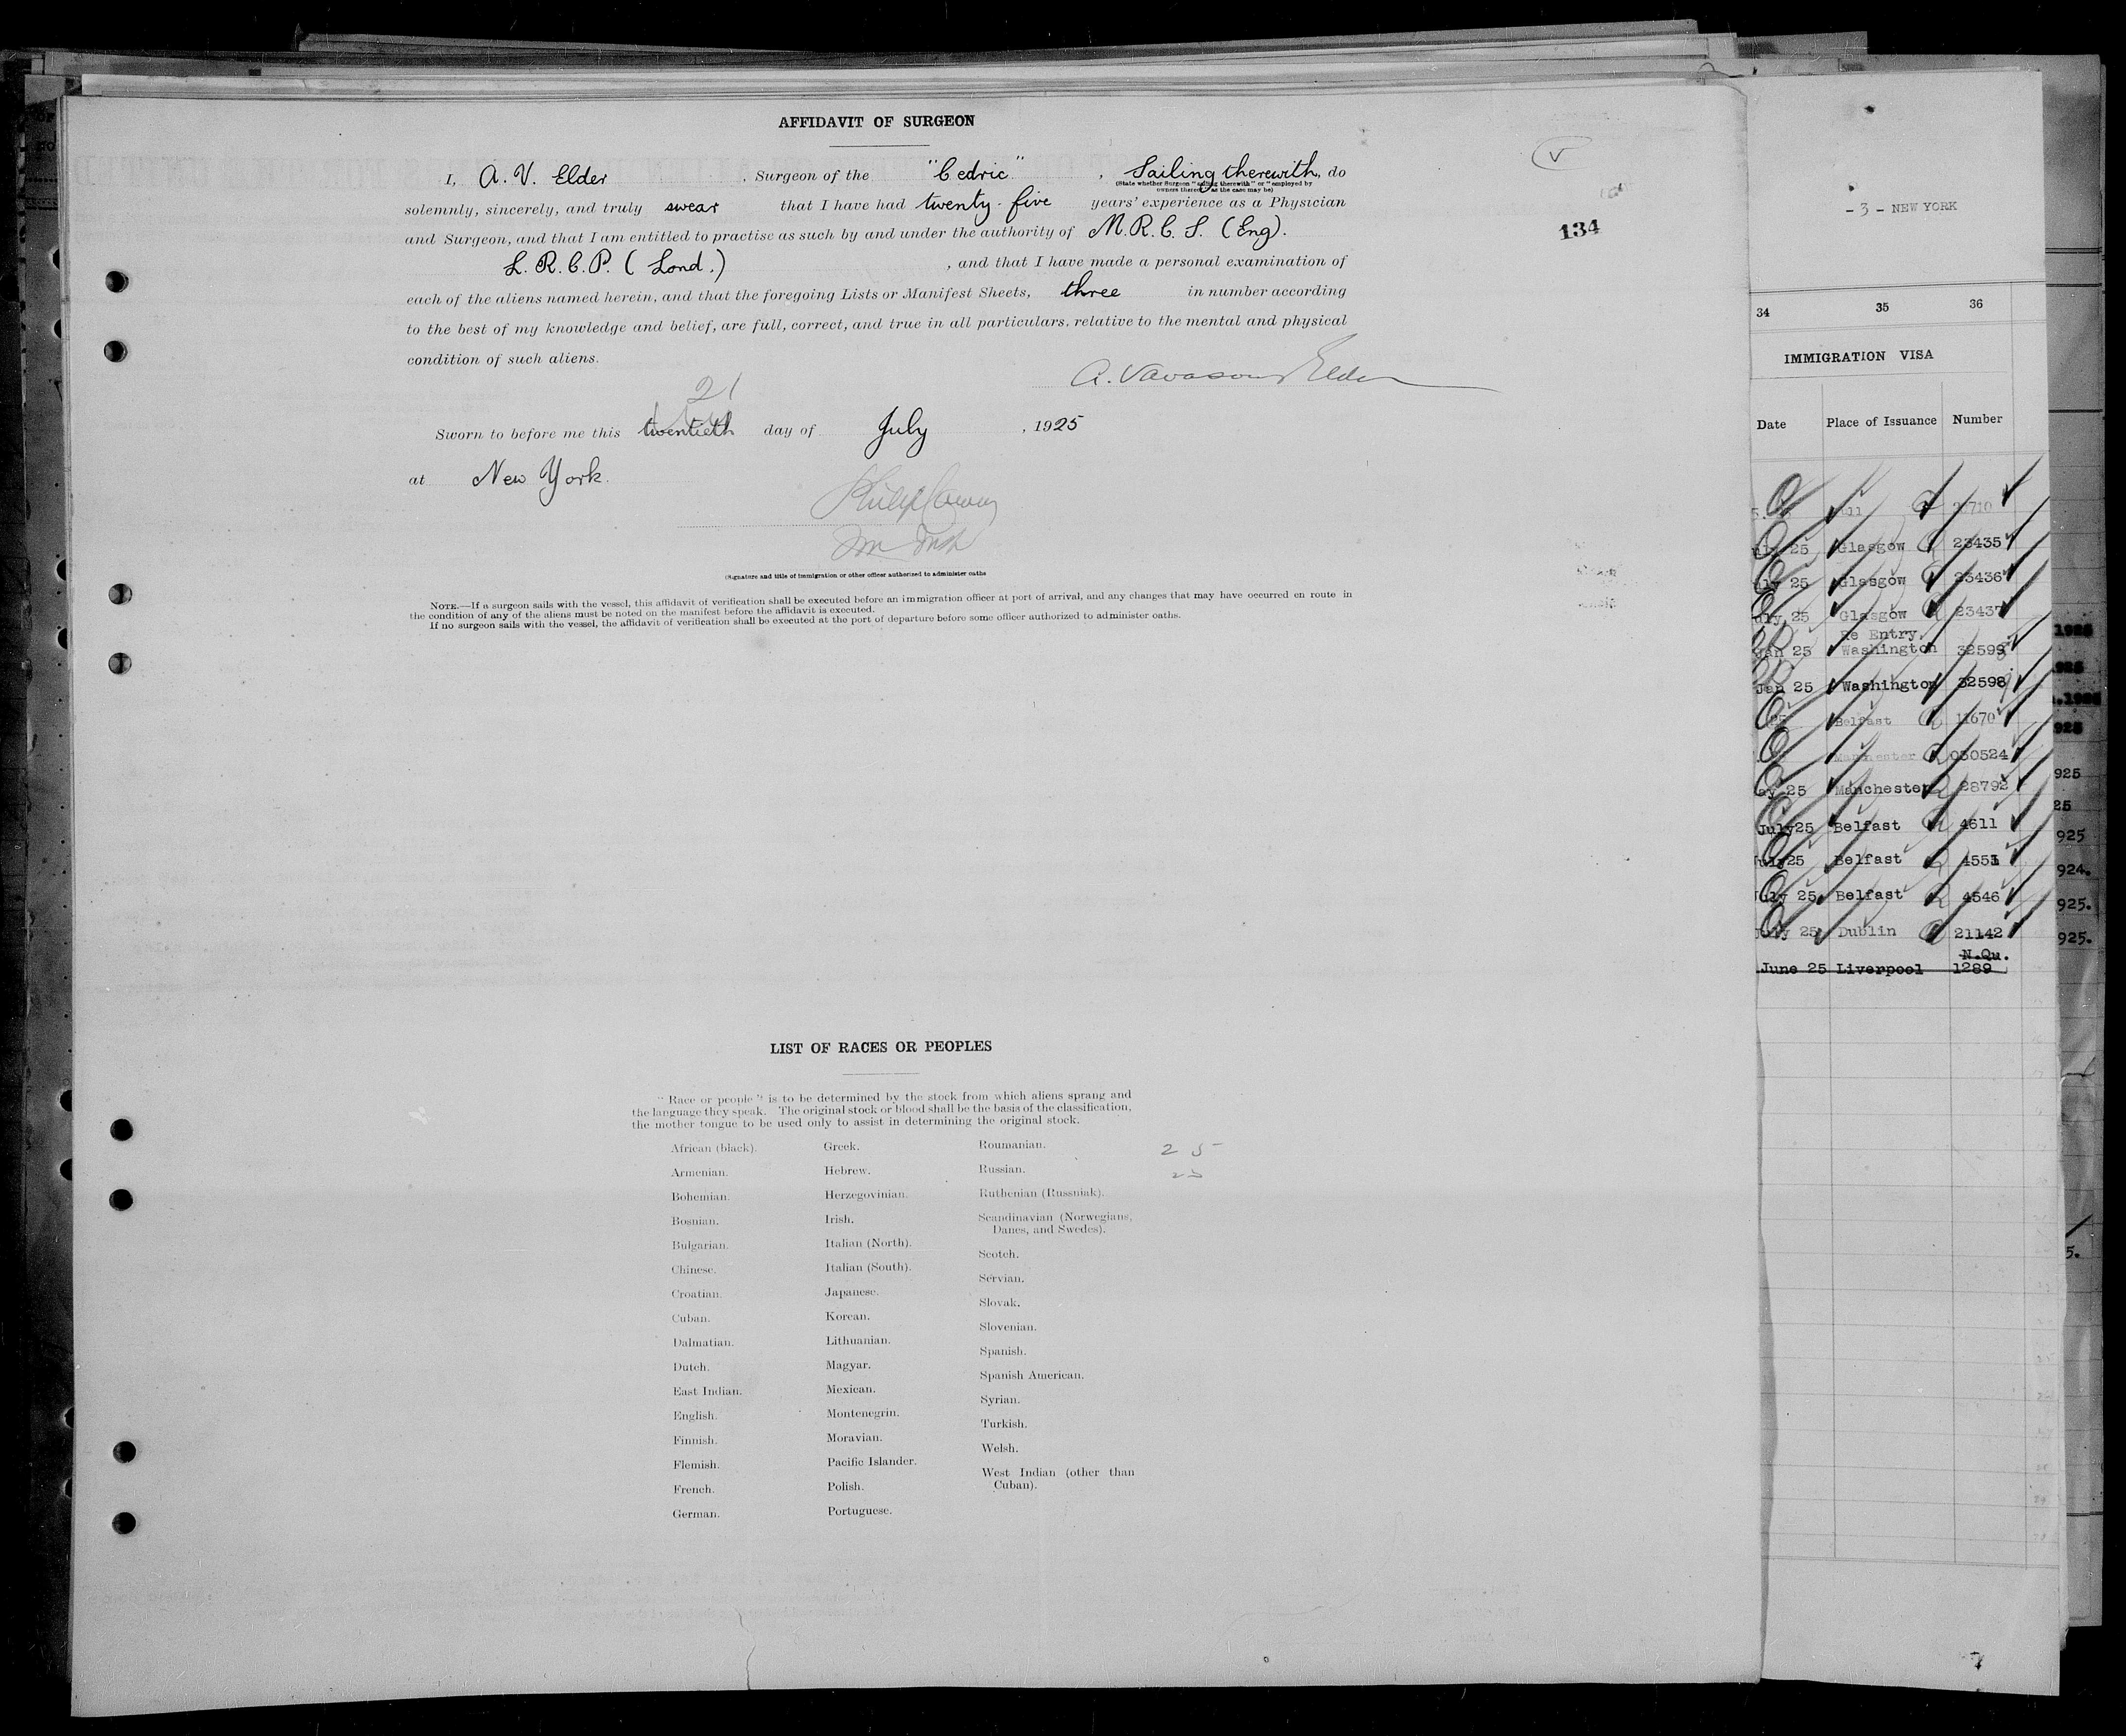 AFFIDAVIT OF SURGEON
I, A. V. Elder, Surgeon of the "Cedric", Sailing therewith, do
(State whether Surgeon "sailing therewith" or "employed by
owners thereof," as the case may be)
solemnly, sincerely, and truly swear that I have had twenty-five years' experience as a Physician
and Surgeon, and that I am entitled to practise as such by and under the authority of M.R.C.S. (Eng).
L.R.C.P. (Lond.), and that I have made a personal examination of
each of the aliens named herein, and that the foregoing Lists or Manifest Sheets, three in number according
to the best of my knowledge and belief, are full, correct, and true in all particulars, relative to the mental and physical
condition of such aliens.
A. Vavasour Elder
21
Sworn to before me this twentieth day of July, 1925
at New York.
(Signature and title of immigration or other officer authorized to administer oaths
NOTE.—If a surgeon sails with the vessel, this affidavit of verification shall be executed before an immigration officer at port of arrival, and any changes that may have occurred en route in
the condition of any of the aliens must be noted on the manifest before the affidavit is executed.
If no surgeon sails with the vessel, the affidavit of verification shall be executed at the port of departure before some officer authorized to administer oaths.
V
134
LIST OF RACES OR PEOPLES
"Race or people" is to be determined by the stock from which aliens sprang and
the language they speak. The original stock or blood shall be the basis of the classification,
the mother tongue to be used only to assist in determining the original stock.
African (black).
Armenian.
Bohemian.
Bosnian.
Bulgarian.
Chinese.
Croatian.
Cuban.
Dalmatian.
Dutch.
East Indian.
English.
Finnish.
Flemish.
French.
German.
Greek.
Hebrew.
Herzegovinian.
Irish.
Italian (North).
Italian (South).
Japanese.
Korean.
Lithuanian.
Magyar.
Mexican.
Montenegrin.
Moravian.
Pacific Islander.
Polish.
Portuguese.
Roumanian.
Russian.
Ruthenian (Russniak).
Scandinavian (Norwegians,
Danes, and Swedes).
Scotch.
Servian.
Slovak.
Slovenian.
Spanish.
Spanish American.
Syrian.
Turkish.
Welsh.
West Indian (other than
Cuban).
2 5
25
- 3 - NEW YORK
34 35 36
IMMIGRATION VISA
Date Place of Issuance Number
25 Glasgow 23435
25 Glasgow 23436
25 Glasgow 23437
Re Entry.
Jan 25 Washington 32599
Jan 25 Washington 32598
Belfast 11670
Manchester 030524
25 Manchester 28792
July25 Belfast 4611
25 Belfast
July 25 Belfast 4546
July 25 Dublin 21142
N.Qu.
June 25 Liverpool 1289
1925
925
1925
925
925
25
925
924.
925.
925.
5.